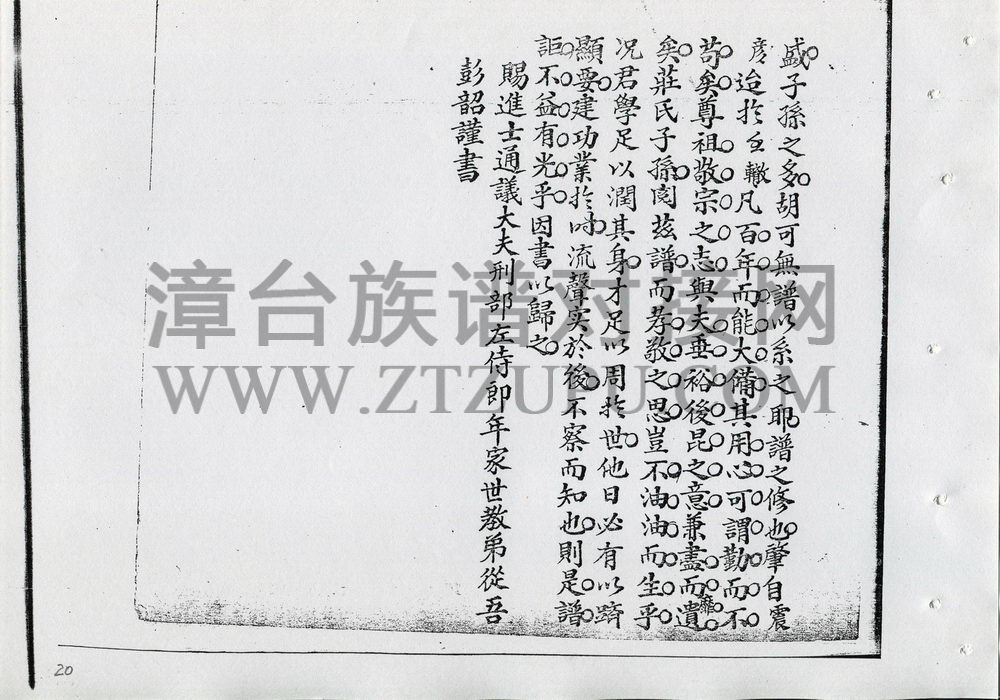 盛子孫之多胡可無譜以系之耶譜之修也肇自震
彥迨扵公轍凡百年而能大備其用心可謂勤而不
苟矣尊祖敬宗之志與夫垂裕後昆之意兼盡而靡遺
矣莊氏子孫閱玆譜而孝敬之思豈不油油而生乎
况君學足以潤其身才足以周扵世他日必有以躋
顯要建功業扵時流聲实於後不察而知也則是譜
詎不益有光乎因書以歸之
賜進士通議大夫刑部左侍郎年家世教弟從吾
彭韶謹書
漳台族谱对接网
WWW.ZTZUPU.COM
20